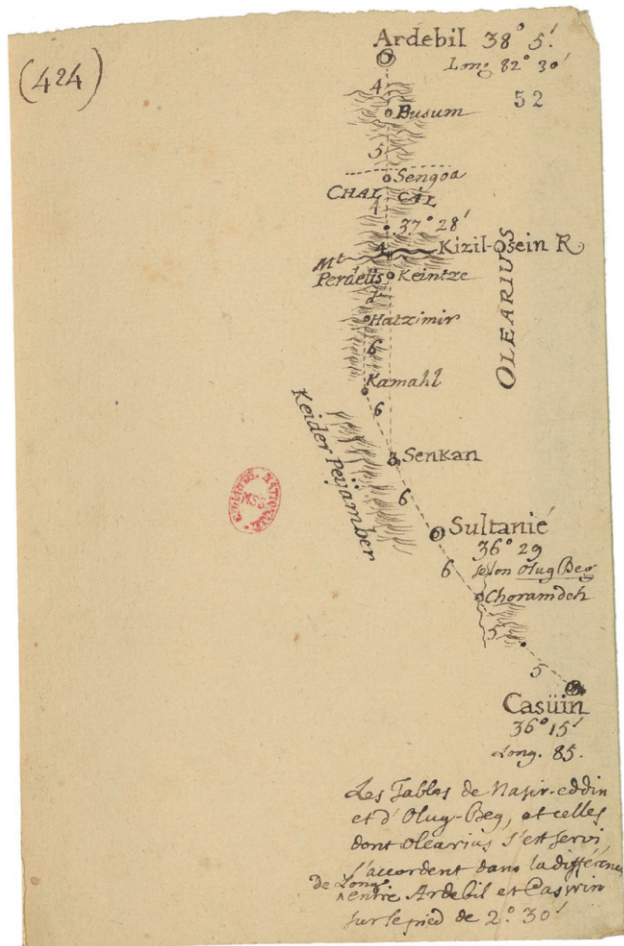 (424)
Ardebil 38° 5'
Long. 82° 30'
52
4
Busum
5
Sengoa
CHAL CAL
4
37° 28'
4
Kizil-Osein R
Mt
Perdelis
Keintze
2
Hatzimir
6
Kamahl
OLEARIUS
6
Keider Peÿamber
Senkan
6
Sultanié
36° 29
selon Olug Beg
6
Choramdeh
5
5
Casüin
36° 15'
Long. 85.
Les Tables de Nasir-eddin
et d'Olug-Beg, et celles
dont Olearius s'est servi
s'accordent dans la différence
de Long. entre Ardebil et Caswin
sur le pied de 2° 30'